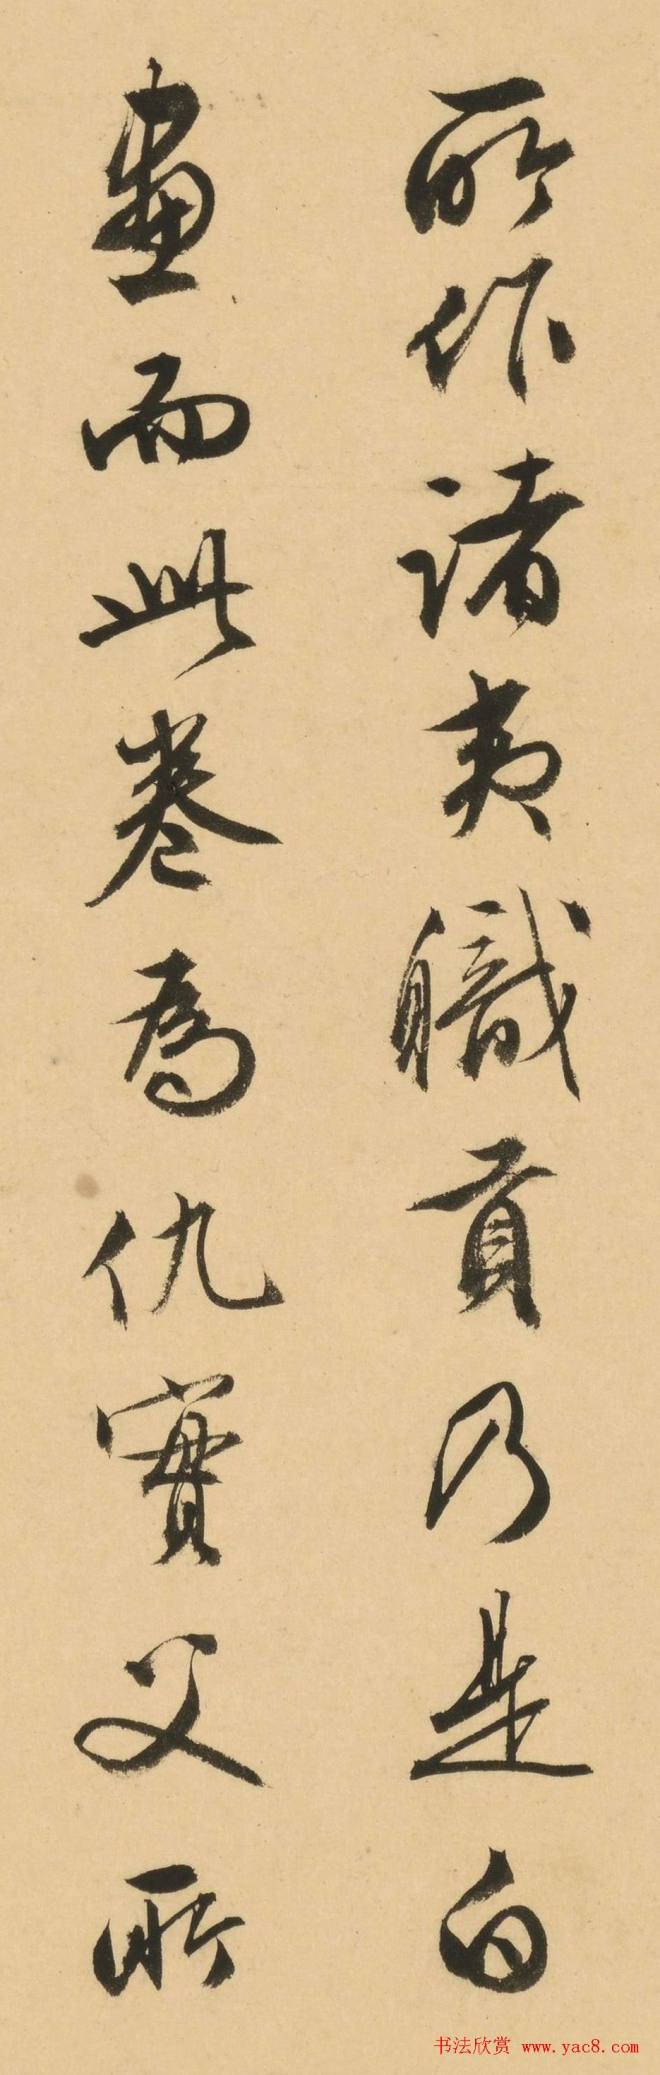 所作諸夷職貢乃是白
畫而此卷為仇實父所
书法欣赏 www.yac8.com